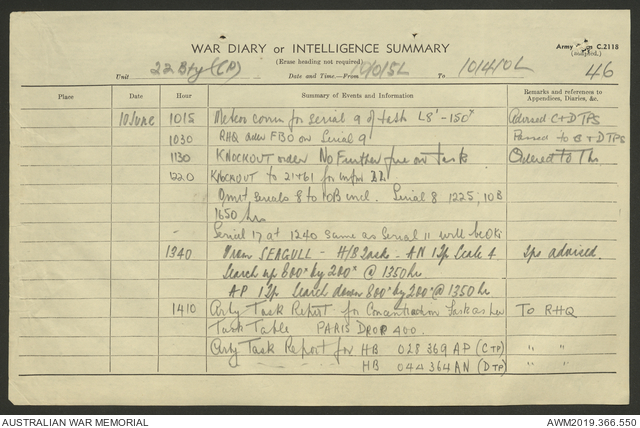 WAR DIARY or INTELLIGENCE SUMMARY
Army C.2118
(Erase heading not required)
46
Unit 22 Bty (CP) Date and Time—From To 101410L
Place Date Hour Summary of Events and Information Remarks and references to
Appendices, Diaries, &c.
10 June 1015 Meteor corrn for serial 9 of task L8' -150ˣ
1030 RHQ order FBO on Serial 9
1130 KNOCKOUT order No Further fire on Task Ordered to
1220 KNOCKOUT to 21+61 for
Omit serials 8 to 10B incl. Serial 8 1225, 10B
1650 hrs
- Serial 17 at 1240 same as Serial 11 will be OK
1340 From SEAGULL - H/B - AN Scale 4 Tps advised
Search up 800ˣ by 200ˣ @ 1350 hr
AP Search down 800ˣ by 200ˣ @ 1350 hr
1410 Arty Task Report for Concentration Task as per To RHQ
Task Table PARIS DROP 400.
Arty Task Report for HB 028369 AP (C TP) " "
HB 044364 AN (D TP) " "
AUSTRALIAN WAR MEMORIAL
AWM2019.366.550